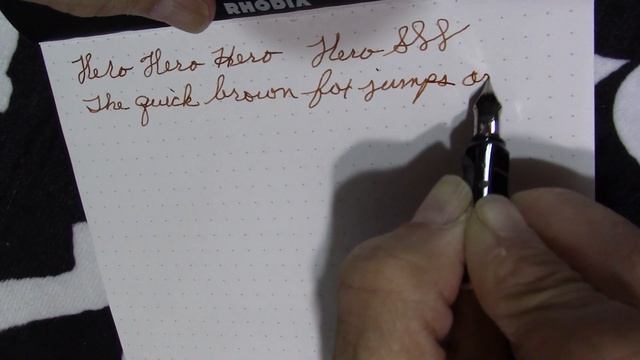 RHODIA
Hero Hero Hero Hero SSS
The quick brown fox jumps o